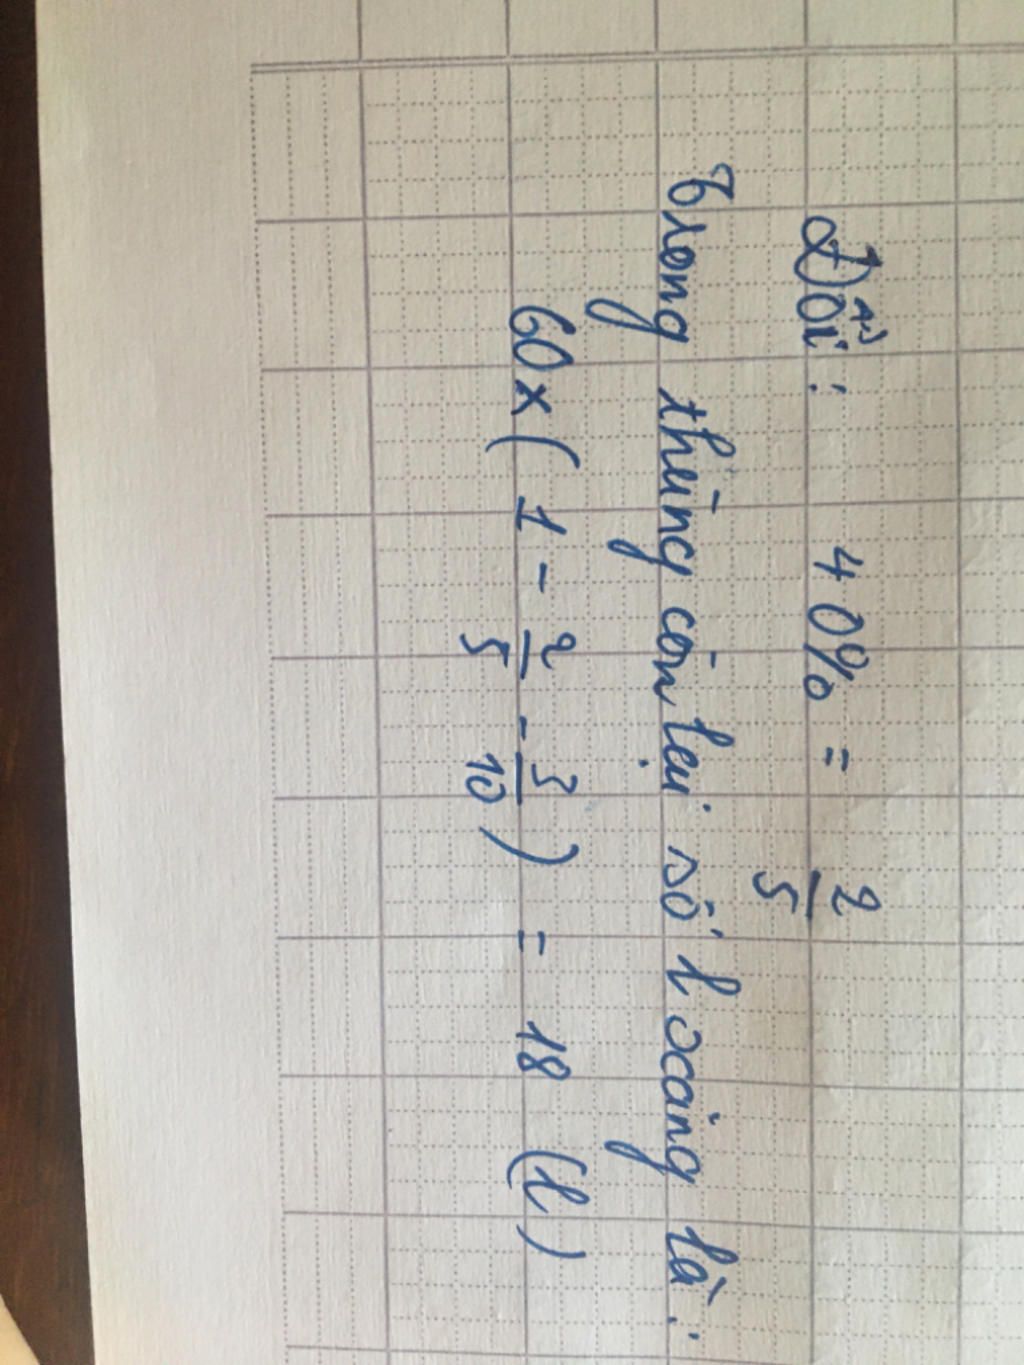 Đổi: 40% = 2/5
Trong thùng còn lại số l xăng là:
60 x ( 1 - 2/5 - 3/10 ) = 18 (l)